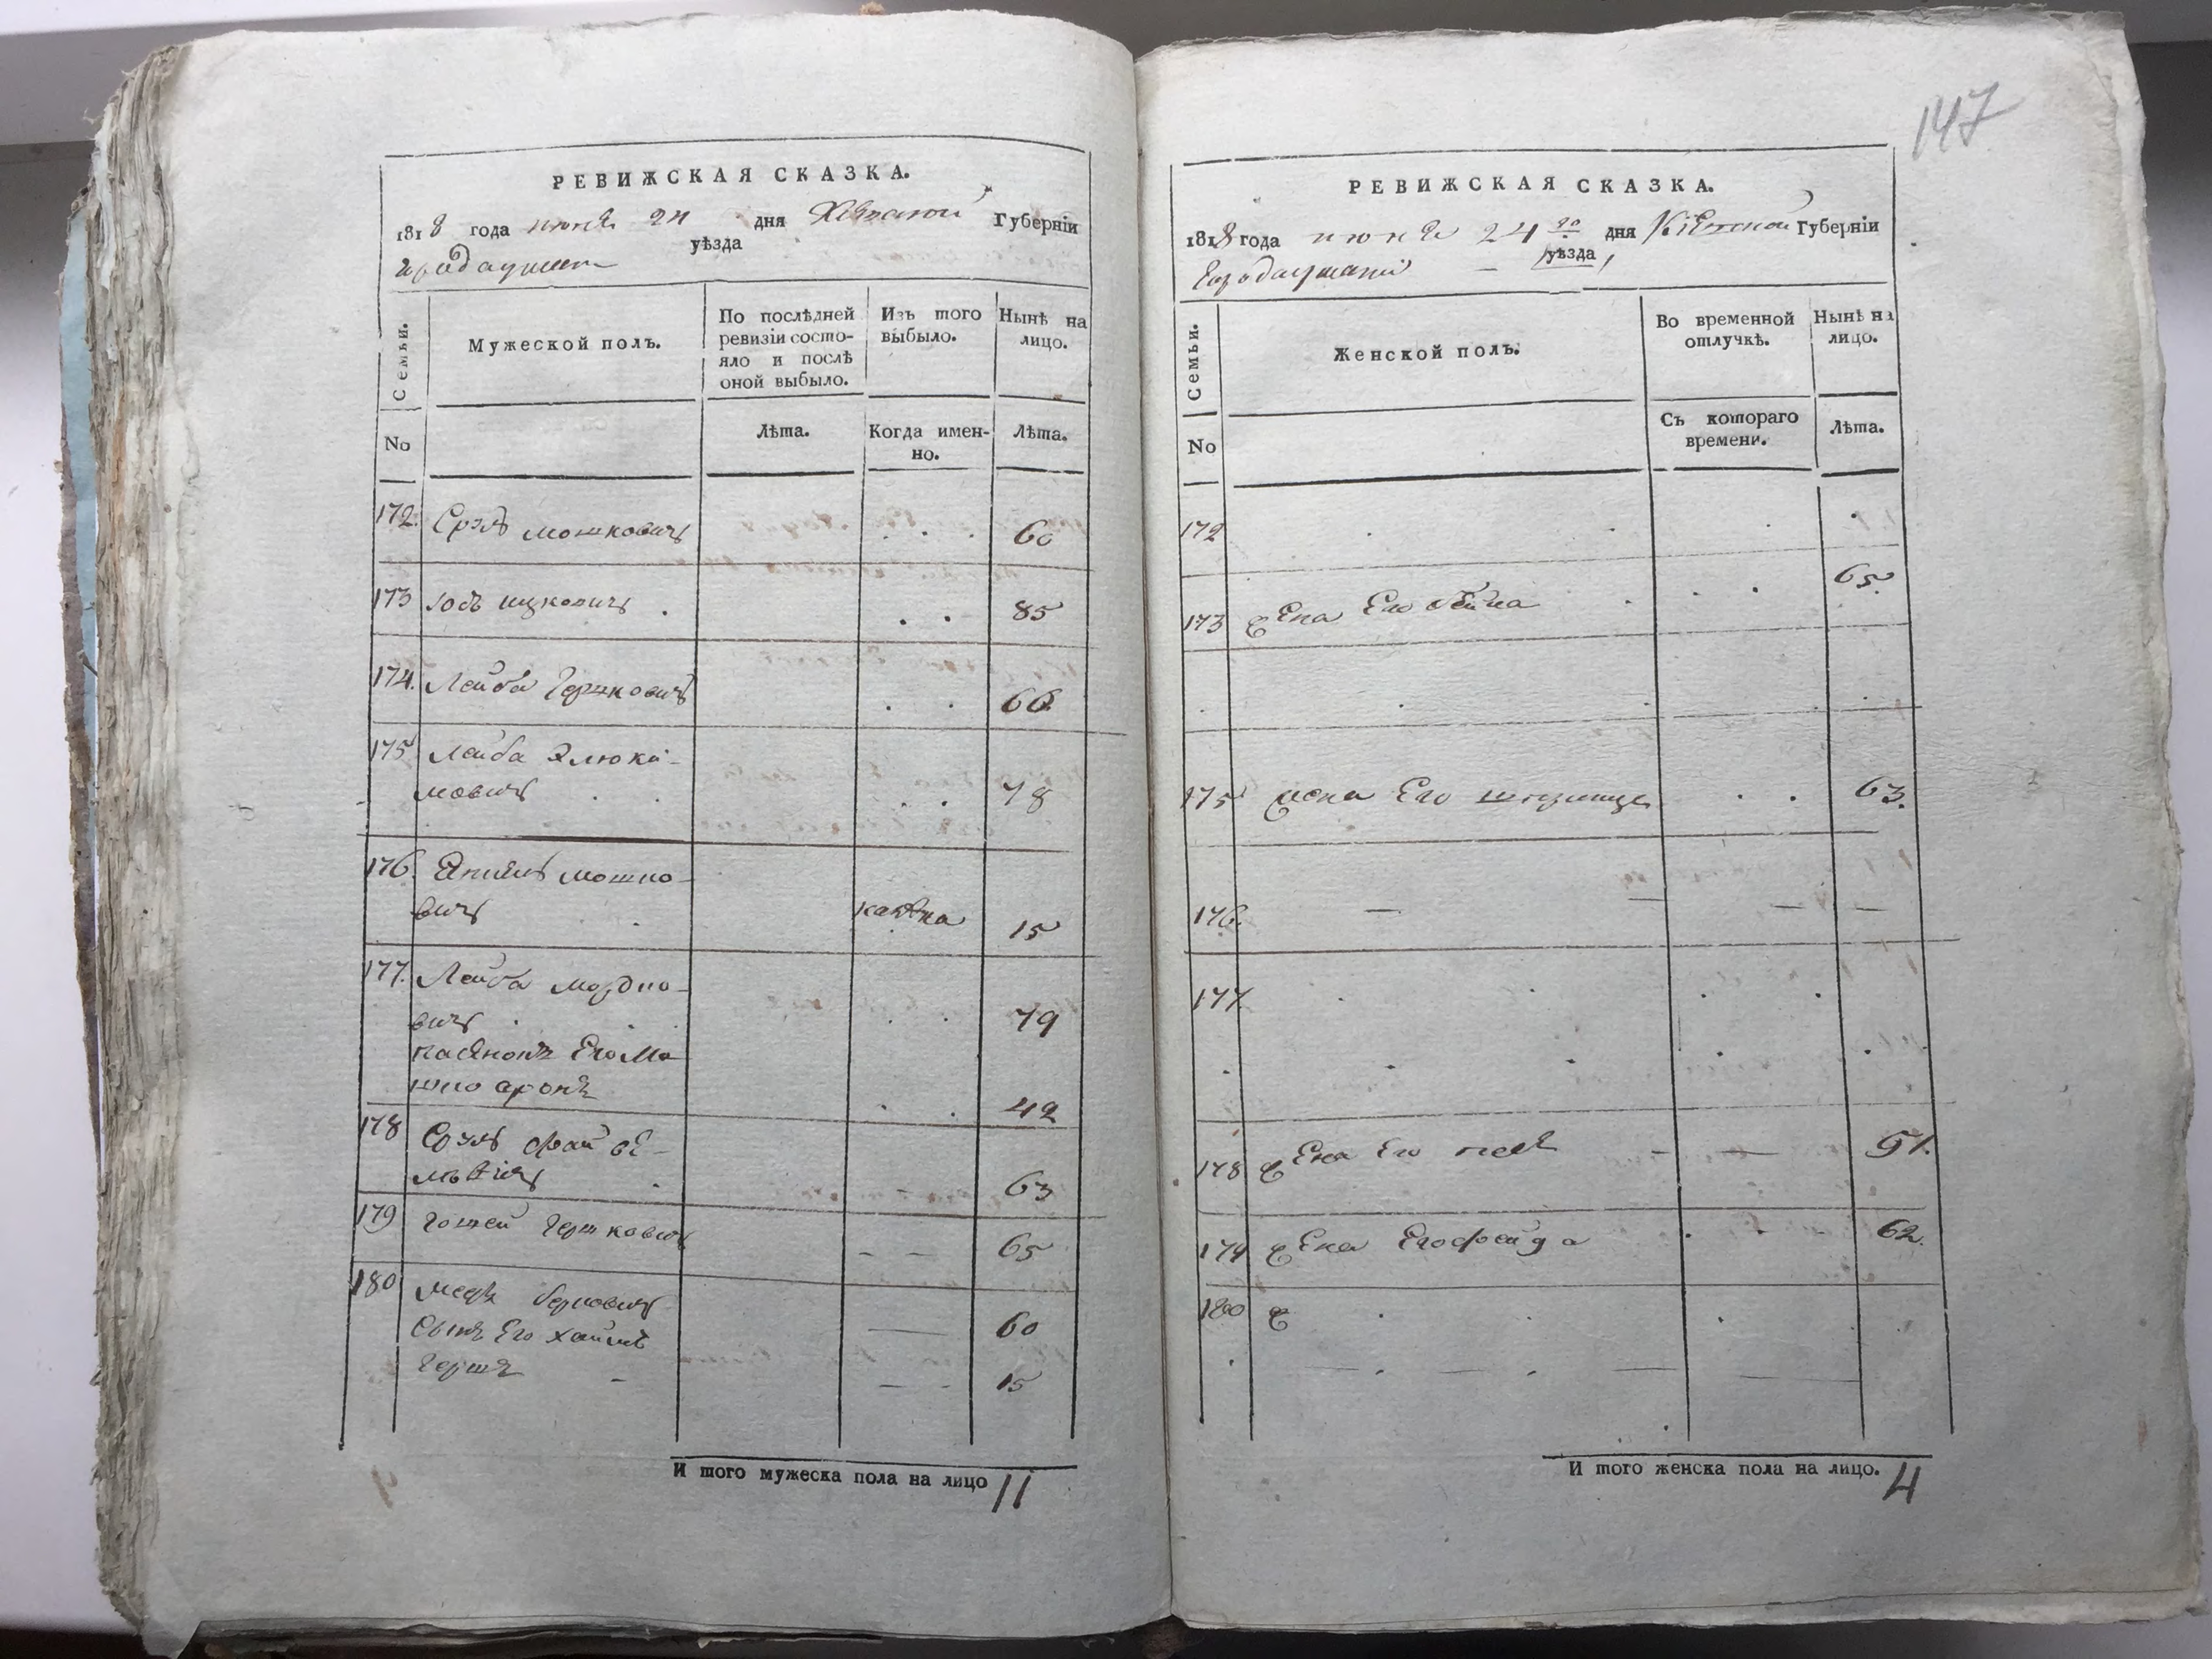 147
РЕВИЖСКАЯ СКАЗКА.
1818 года июня 24 дня Губерніи
уѣзда
Семьи.
Мужеской полъ.
По послѣдней ревизіи состо-
яло и послѣ
оной выбыло.
Изъ того
выбыло.
Нынѣ на
лицо.
No
Лѣта.
Когда имен-
но.
Лѣта.
172. Сруль Мошковичъ 60
173 Юсъ Ицковичъ 85
174. Лейба Гершковичъ 66
175 Лейба
мовичъ 78
176. Мошко-
вичъ 15
177. Лейба Мордко-
вичъ 79
Его Мо
шко Аронъ 42
178 Сруль Файве-
львичъ 63
179 Гершковичъ 65
180 Мееръ Берковичъ 60
Сынъ Его Хаимъ
Гершъ 15
И того мужеска пола на лицо 11
РЕВИЖСКАЯ СКАЗКА.
1818 года июня 24 го дня Кіевской Губерніи
уѣзда
Семьи.
Женской полъ.
Во временной
отлучкѣ.
Нынѣ на
лицо.
No
Съ котораго
времени.
Лѣта.
172
173 Жена Его Бейла 65
175 Жена Его 63.
176.
177.
178 Жена Его 51.
179 Жена Его Фейда 62.
180
И того женска пола на лицо. 4